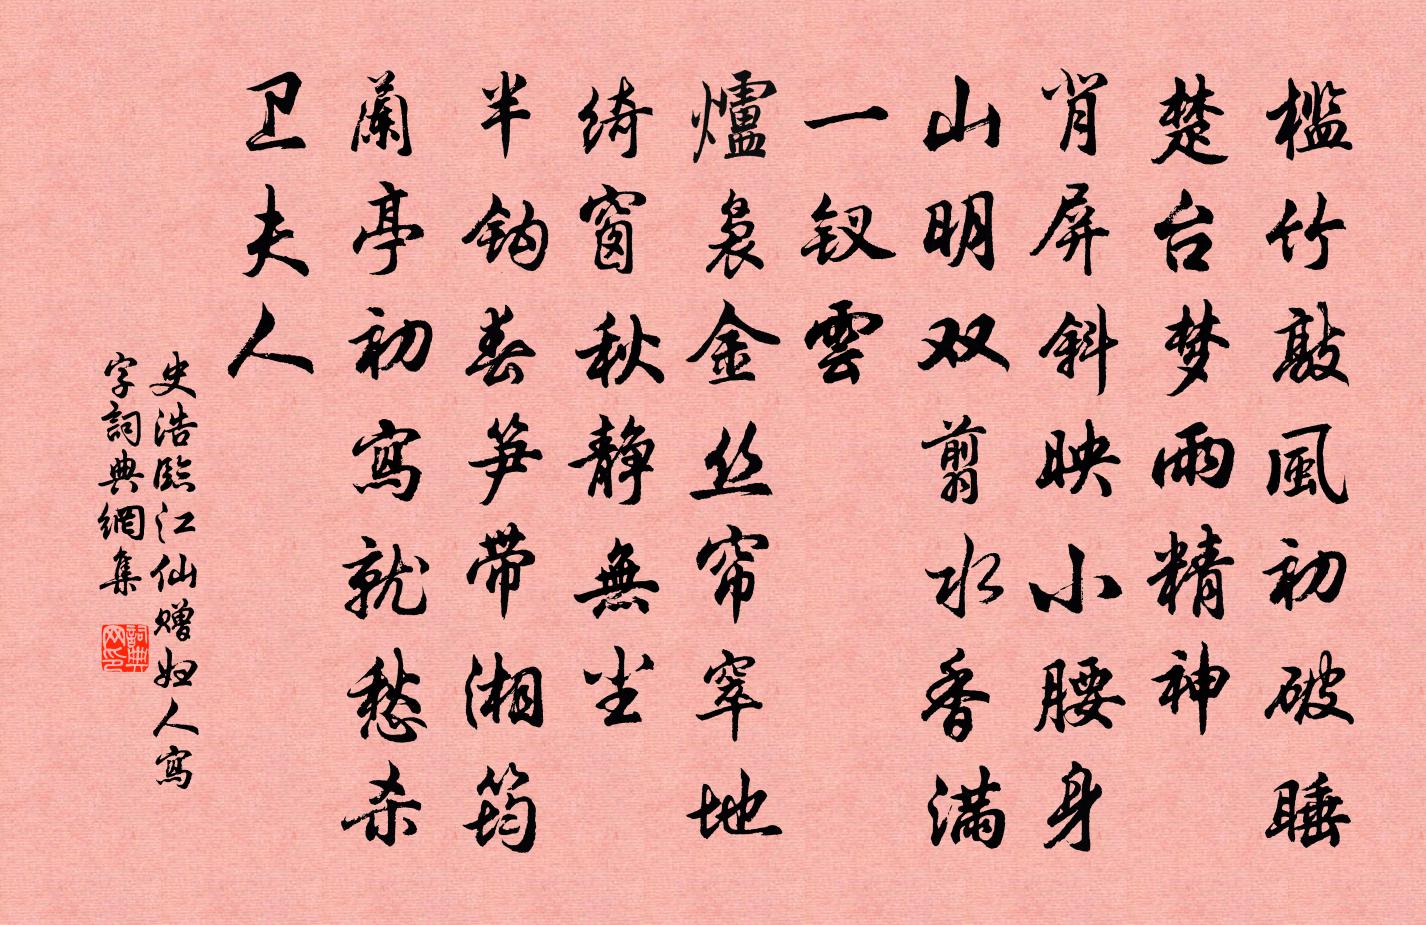 槛竹敲風初破睡
楚台梦雨精神
肖屏斜映小腰身
山明双翦水香满
一钗雲
爐袅金丝帘窣地
绮窗秋静無尘
半钩春笋带湘筠
蘭亭初寫就愁杀
卫夫人
史浩臨江仙赠妇人寫
字詞典網集
詞典网印